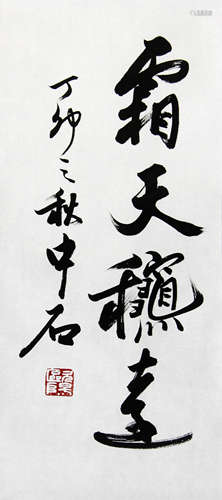 霜天龝
丁卯之秋中石